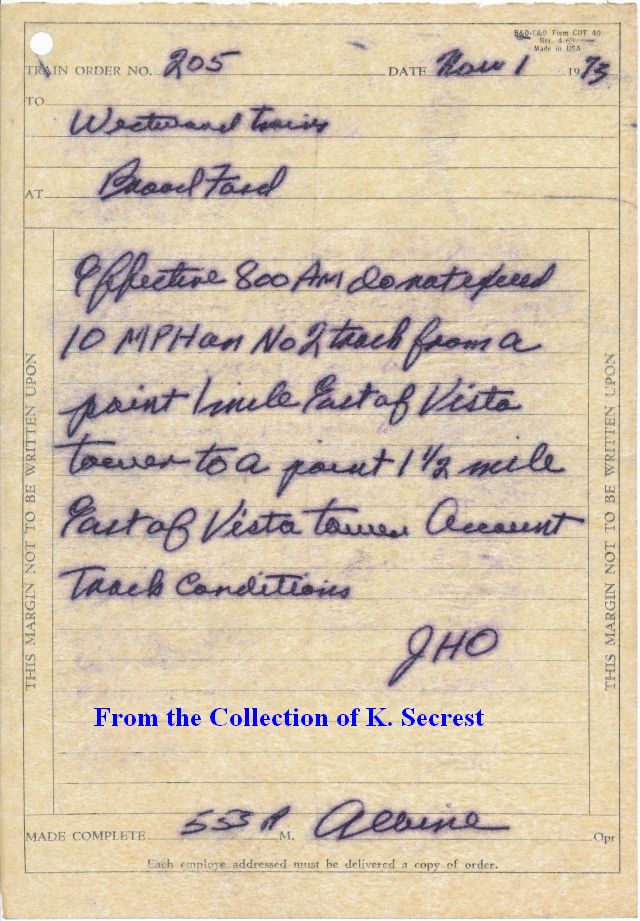 B&O-C&O Form CDT 40
Rev. 4-69
Made in USA
TRAIN ORDER NO. 205 DATE Nov 1 1973
TO
Westward Trains
AT Broad Ford
Effective 800 AM do not exceed
10 MPH on No 2 track from a
point 1 mile East of Vista
tower to a point 1 1/2 mile
East of Vista tower Account
Track Conditions
JHO
THIS MARGIN NOT TO BE WRITTEN UPON
THIS MARGIN NOT TO BE WRITTEN UPON
From the Collection of K. Secrest
MADE COMPLETE 553 A M. Opr
Each employe addressed must be delivered a copy of order.